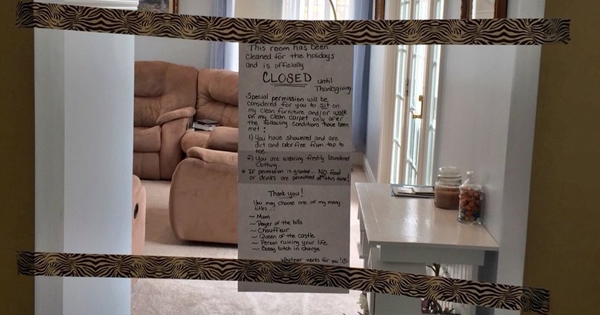 This room has been
cleaned for the holidays
and is officially
CLOSED until
Thanksgiving
Special permission will be
considered for you to sit on
my clean furniture and/or walk
on my clean carpet only after
the following conditions have been
met:
1) You have showered and are
dirt and odor free from top to
toe.
2) You are wearing freshly laundered
clothing.
* If permission is granted - NO food
or drinks are permitted at this time!
Thank you!
You may choose one of my many
titles...
~ Mom
~ Payer of the bills
~ Chauffeur
~ Queen of the castle
~ Person ruining your life
~ Bossy bitch in charge
Whatever works for you!